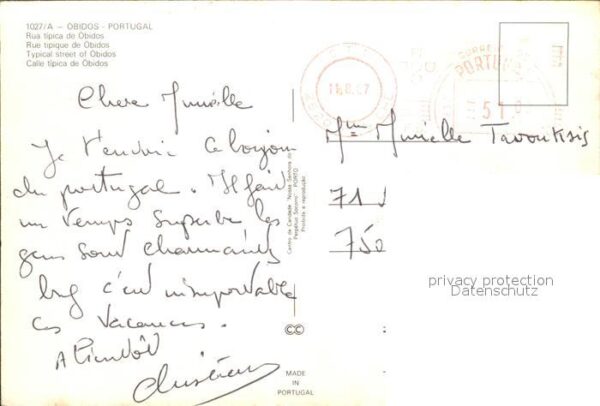 1027/A — ÓBIDOS - PORTUGAL
Rua típica de Óbidos
Rue tipique de Óbidos
Typical street of Óbidos
Calle típica de Óbidos
Chere Murielle
Je t'envoie ce bonjour
du portugal. Il fait
un temps superbe les
gens sont charmants
bref c'est
ces vacances.
A bientôt
Centro de Caridade "Nossa Senhora do
Perpétuo Socorro" - PORTO
Proibida a reprodução
CC
MADE
IN
PORTUGAL
CORREIO
PORTUGAL
51
Mme Murielle Tavouksis
71
750
privacy protection
Datenschutz